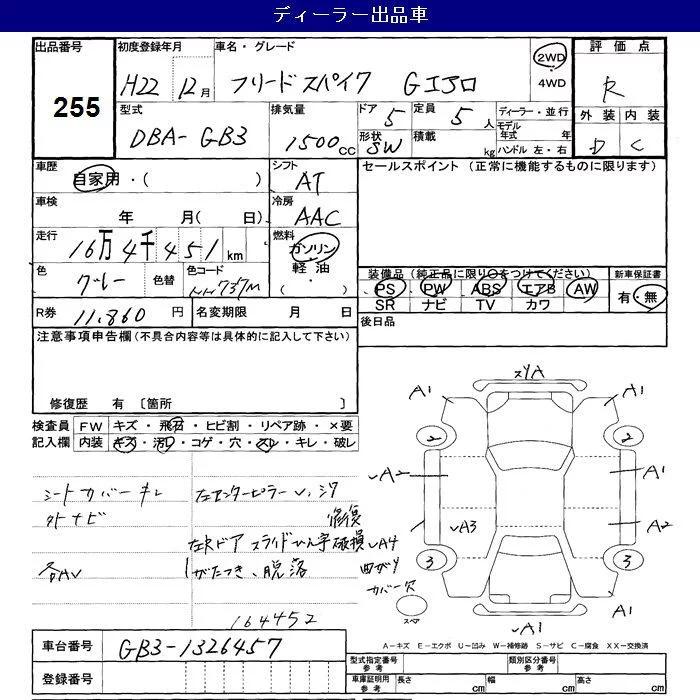 ディーラー出品車
出品番号
255
初度登録年月
H22 12月
車名・グレード
フリード スパイク Gエアロ
2WD
・
4WD
評価点
R
外装 内装
D C
型式
DBA-GB3
排気量
1500cc
ドア
5
定員
5人
形状
SW
積載
kg
ディーラー・並行
モデル年式 年
ハンドル 左・右
車歴
自家用・( )
シフト
AT
セールスポイント (正常に機能するものに限ります)
車検
年 月(日)
冷房
AAC
走行
16万4千451km
燃料
ガソリン
軽油
( ・ )
色
グレー
色替
色コード
NH737M
装備品 (純正品に限り○をつけてください)
PS PW ABS エアB AW
SR ナビ TV カワ
新車保証書
有・無
R券 11,860円
名変期限 月 日
後日品
注意事項申告欄(不具合内容等は具体的に記入して下さい)
修復歴 有 〔箇所 〕
検査員記入欄
FW キズ・飛石・ヒビ割・リペア跡・×要
内装 キズ・汚レ・コゲ・穴・スレ・キレ・破レ
シートカバーキレ
外ナビ
各AV
左センターピラーU、ジワ
修復
左Rドア スライドひん字破損
ガたつき、脱落
164452
スリA
A1
A1
2
2
A2
A1
A3
A2
A4
曲ガリ
カバー欠
3
3
A1
A1
A1
スペア
A-キズ E-エクボ U-凹み W-補修跡 S-サビ C-腐食 XX-交換済
車台番号
GB3-1326457
登録番号
型式指定番号
参考
類別区分番号
参考
車庫証明用
参考
長さ cm
幅 cm
高さ cm